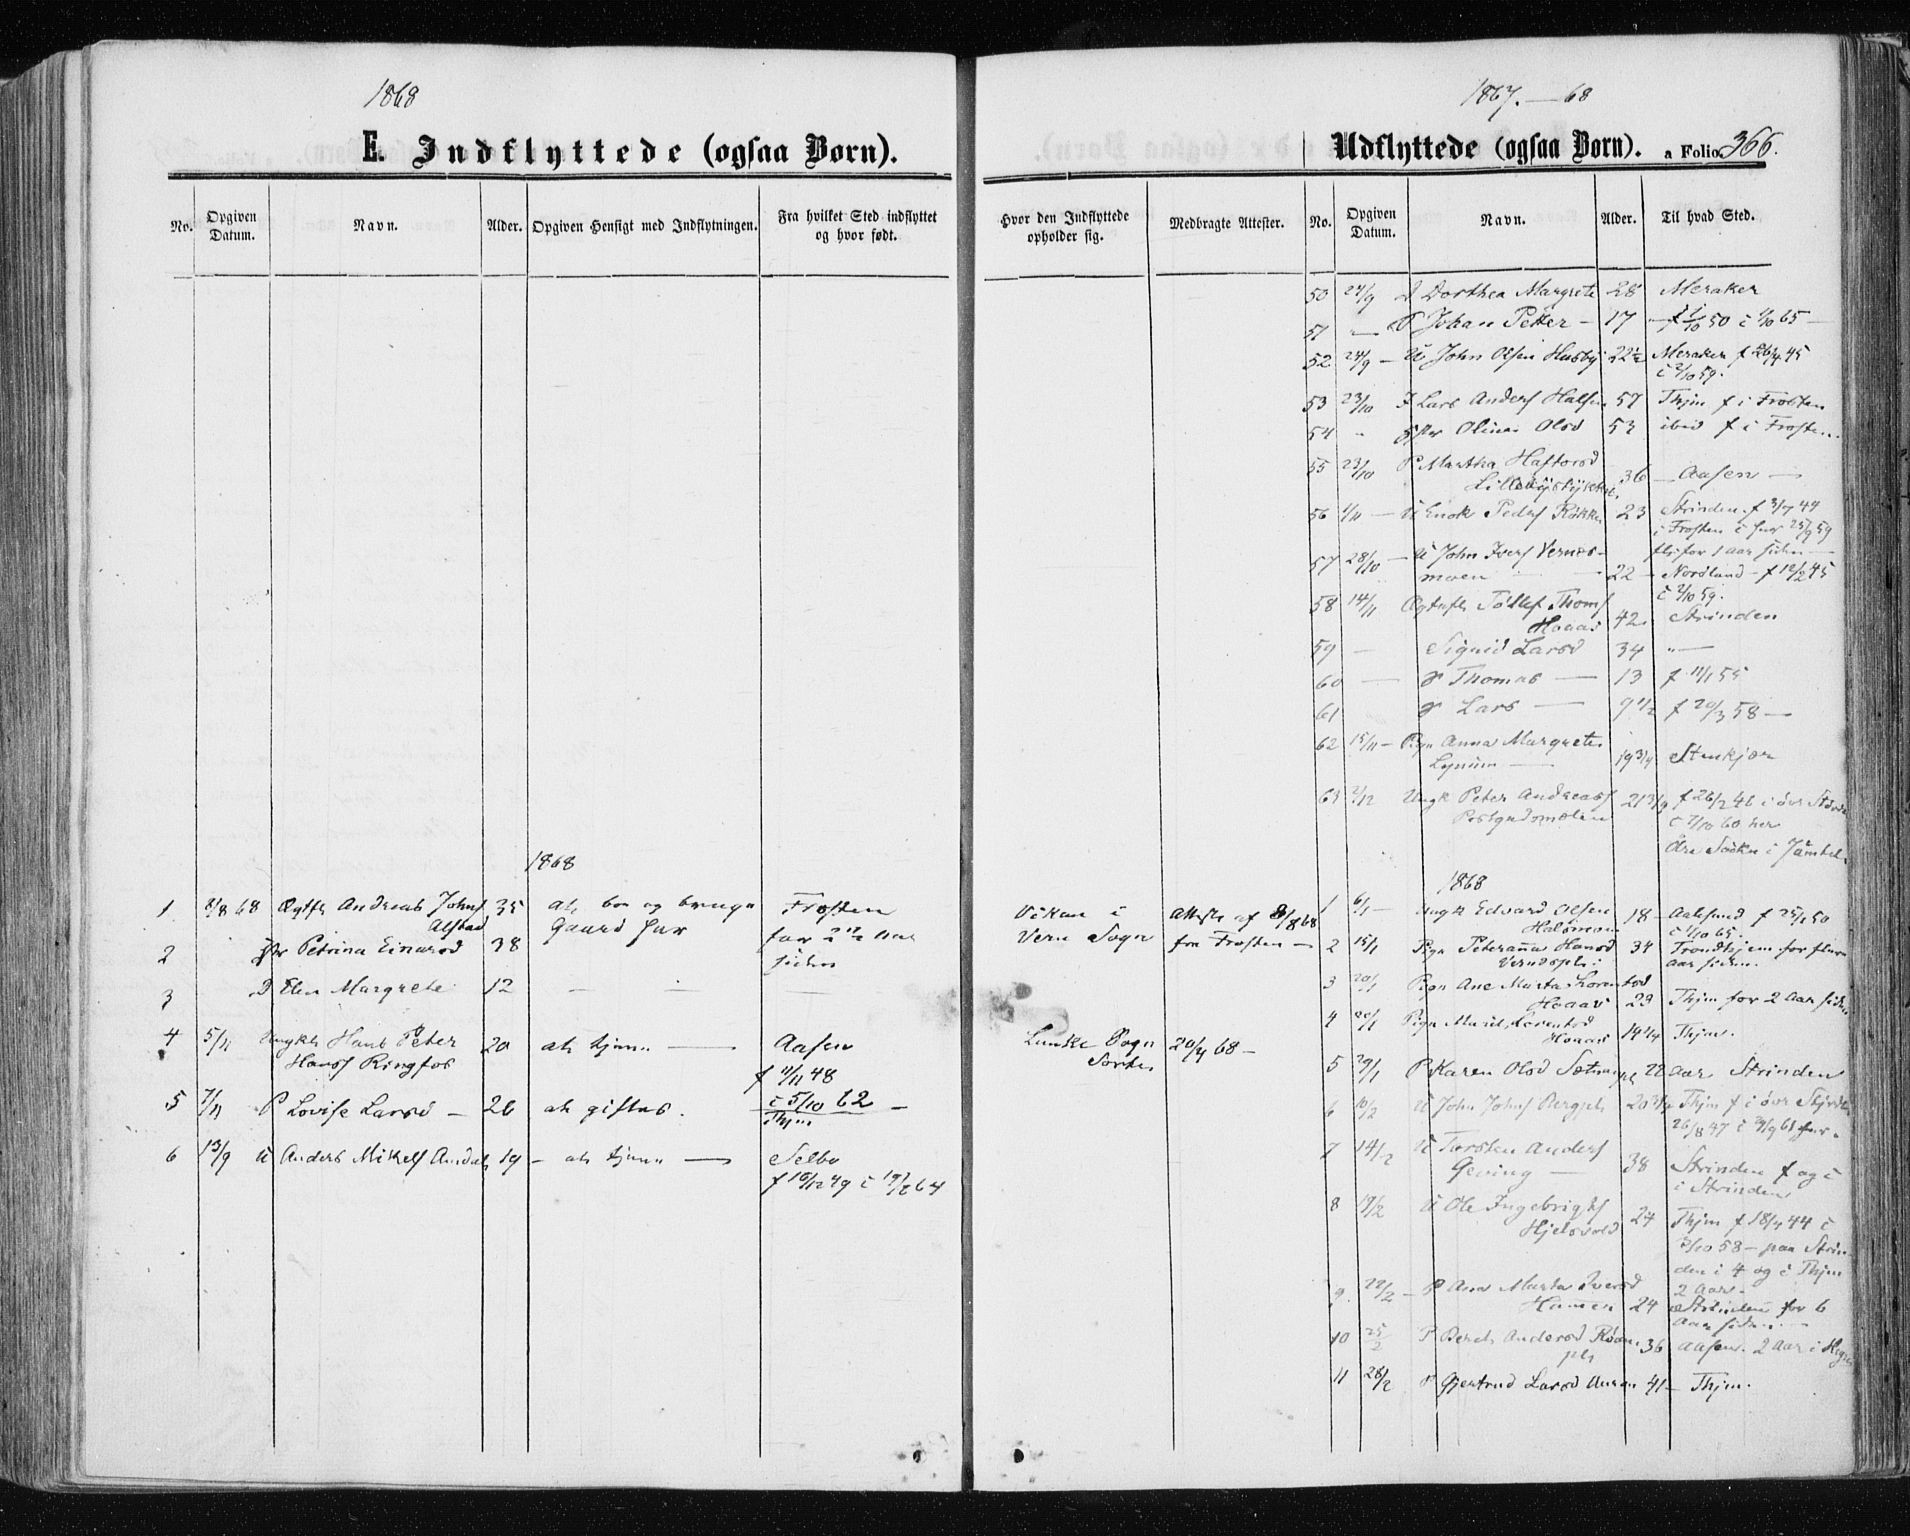 1868
E. Indflyttede (ogsaa Børn).
No.
Opgiven Datum.
Navn.
Alder.
Opgiven Hensigt med Indflytningen.
Fra hvilket Sted indflyttet og hvor født.
1868
1 8/8 68 Andreas Johns 35 at boe og bruge Frosten
Alstad Gaard her for 2 1/2 Aar
2 Petrina Einarsd 38 siden
3 D Elen Margrete 12 — — —
4 5/11 Ungkl Hans Peter 20 at tjene — Aasen
Hanss Ringfos f 11/11 48
5 7/11 P Lovise Larsd — 26 at giftes. c 5/10 62 —
Thjm
6 13/9 U Anders Mikels 19 — at tjene — Selbo
f 16/12 49 c 64
1867.—68
Udflyttede (ogsaa Børn). a Folio. 366.
Hvor den Indflyttede opholder sig.
Medbragte Attester.
No.
Opgiven Datum.
Navn.
Alder.
Til hvad Sted.
Vikan i Attest af 8/8 68
Vern Sogn fra Frosten —
Lunke Sogn 20/4 68 —
50 24/9 D Dorthea Margrete 28 Meraker
51 — P Johan Petter — 17 — f 1/10 50 c 1/10 65 —
52 24/9 — U John Olsen Husby 22 1/2 Meraker f 26/4 45
c 2/10 59.
53 23/10 I Lars Anders Halsen 57 Thjm f i Frosten
54 " Olina Olsd 53 ibid f i Frosten.
55 23/10 P Martha Haftorsd
36 — Aasen —
56 1/11 — U Enok Peders Røkke 23 Strinden. f 3/7 44
i Frosten c her 25/9 59
fl. for 1 aar siden —
57 28/10 — U John Ivers Vernes-
moen 22 — Nordland — f 12/2 45
c 2/10 59.
58 14/11 Tollef Thoms
Hoaas 42. Strinden
59 — Sigrid Larsd 34 " —
60 — Thomas — 13 f 11/1 55
61 Lars — 9 1/2 f 20/3 58 —
62 15/11 — Pign Anna Margrete
Lynum — 19 3/4 Stenkjær
63 2/12 Ungk Peter Andreass 21 3/4 f 26/2 46 i övr
c 7/10 60 her
1868
1 6/1 — Ungk Edvard Olsen 18 — Aalesund f 25/1 50
Halsmoen c 1/10 65.
2 15/1 Pign Peteranna Hansd 34 Trondhjem for flere
aar siden.
3 20/1 Pign Ane Marta Lorentsd
Hoaas 23 Thjm for 2 Aar siden
4 20/1 Pign Marit Lorentsd
Hoaas 19 1/4 Thjm.
5 29/1 P Karen Olsd 22 aar Strinden
6 10/2 U John Johns Bergpl 20 3/4 Thjm f i övr Stjørd
26/8 47 c 61 her.
7 14/2 U Torsten Anders
Geving — 38 Strinden f og c
i Strinden
8 19/2 U Ole Ingebrigts
Hjelsvold 24 Thjm f 18/4 44 c
2/10 58 — paa Strin-
den i 4 og i Thjm
2 Aar.
9 22/2 — P Ane Marta Iversd
24 Strinden for 6
Aar siden. —
10 25/2 P Beret Andersd
pl 36 Aasen. 2 Aar i
11 28/2 P Gjertrud Larsd 41 — Thjm.